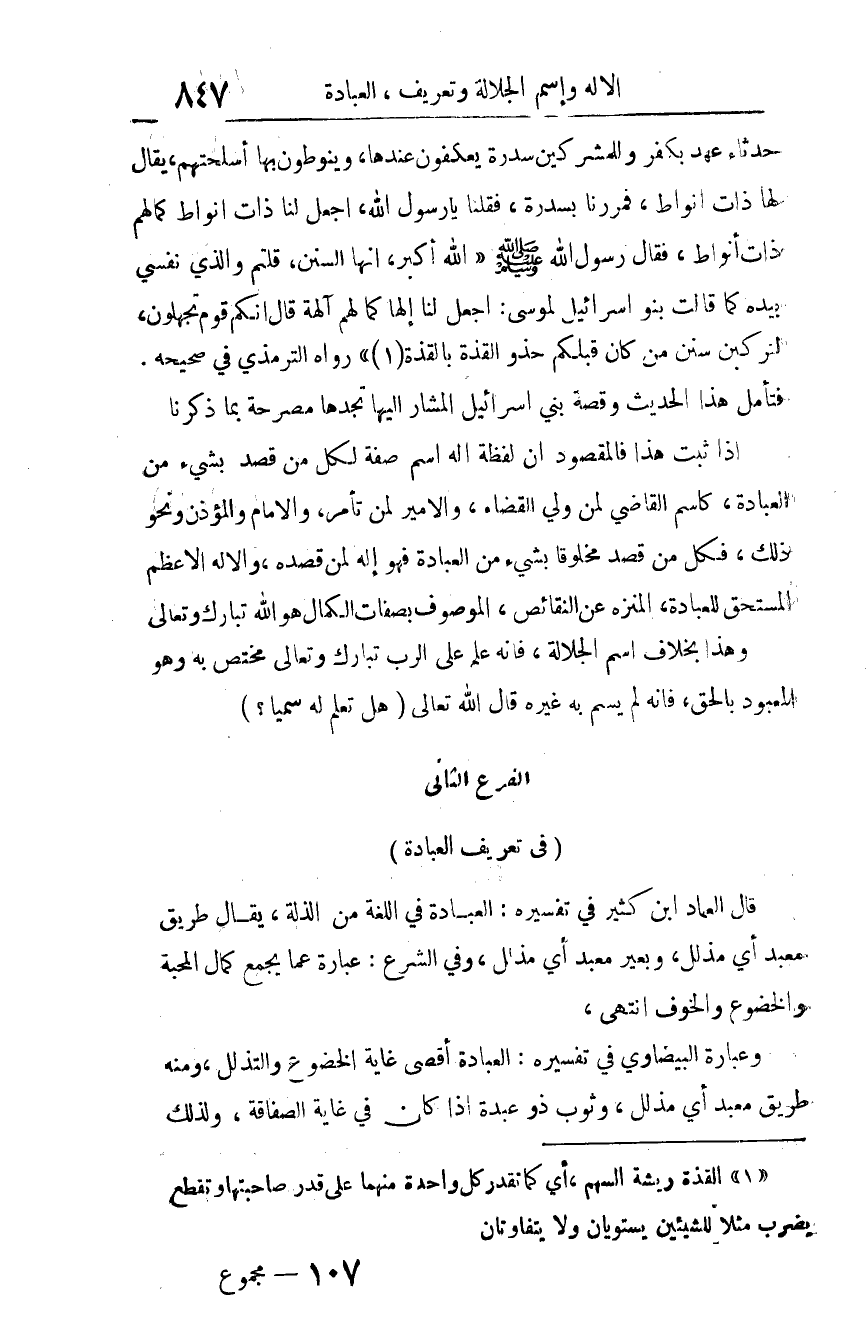 الاله وإسم الجلالة وتعريف ، العبادة ٨٤٧
حدثاء عهد بكفر وللمشركين سدرة يعكفون عندها، وينوطون بها أسلحتهم، يقال
لها ذات انواط ، فمررنا بسدرة ، فقلنا يارسول الله، اجعل لنا ذات انواط كمالهم
ذات أنواط ، فقال رسول الله ﷺ « الله أكبر، انها السنن، قلتم والذي نفسي
بيده كما قالت بنو اسرائيل لموسى: اجعل لنا إلها كما لهم آلهة قال انكم قوم تجهلون،
لتركبن سنن من كان قبلكم حذو القذة بالقذة(١)» رواه الترمذي في صحيحه .
فتأمل هذا الحديث وقصة بني اسرائيل المشار اليها تجدها مصرحة بما ذكرنا
اذا ثبت هذا فالمقصود ان لفظة اله اسم صفة لكل من قصد بشيء من
العبادة ، كاسم القاضي لمن ولي القضاء ، والامير لمن تأمر، والامام والمؤذن ونحو
ذلك ، فكل من قصد مخلوقا بشيء من العبادة فهو إله لمن قصده ،والاله الاعظم
المستحق للعبادة، المنزه عن النقائص ، الموصوف بصفات الكمال هو الله تبارك وتعالى
وهذا بخلاف اسم الجلالة ، فانه علم على الرب تبارك وتعالى مختص به وهو
المعبود بالحق، فانه لم يسم به غيره قال الله تعالى ( هل تعلم له سميا ؟ )
الفرع الثانى
( فى تعريف العبادة )
قال العماد ابن كثير في تفسيره : العبـادة في اللغة من الذلة ، يقـال طريق
معبد أي مذلل، وبعير معبد أي مذلل ، وفي الشرع : عبارة عما يجمع كمال المحبة
والخضوع والخوف انتهى ،
وعبارة البيضاوي في تفسيره : العبادة أقصى غاية الخضوع والتذلل ،ومنه
طريق معبد أي مذلل ، وثوب ذو عبدة اذا كان في غاية الصفاقة ، ولذلك
«١» القذة ريشة السهم ،أي كما تقدر كل واحدة منهما على قدر صاحبتها وتقطع
يضرب مثلا للشيئين يستويان ولا يتفاوتان
١٠٧ – مجموع